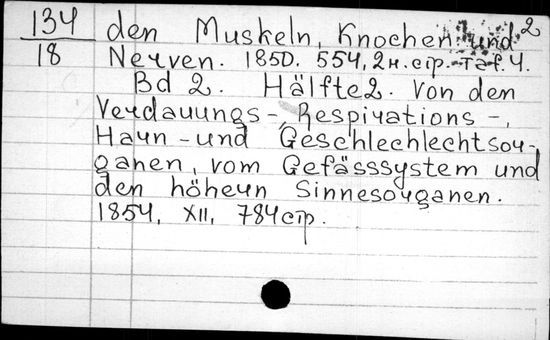 134 den Muskeln, Knochen und 2
18 Nerven. 1850. 554, 2н. стр. Taf. 4.
Bd 2. Hälfte 2. Von den
Verdauungs-, Respirations-,
Harn- und Geschlechlechtsor-
ganen, vom Gefässsystem und
den höhern Sinnesorganen.
1854, XII, 784 стр.